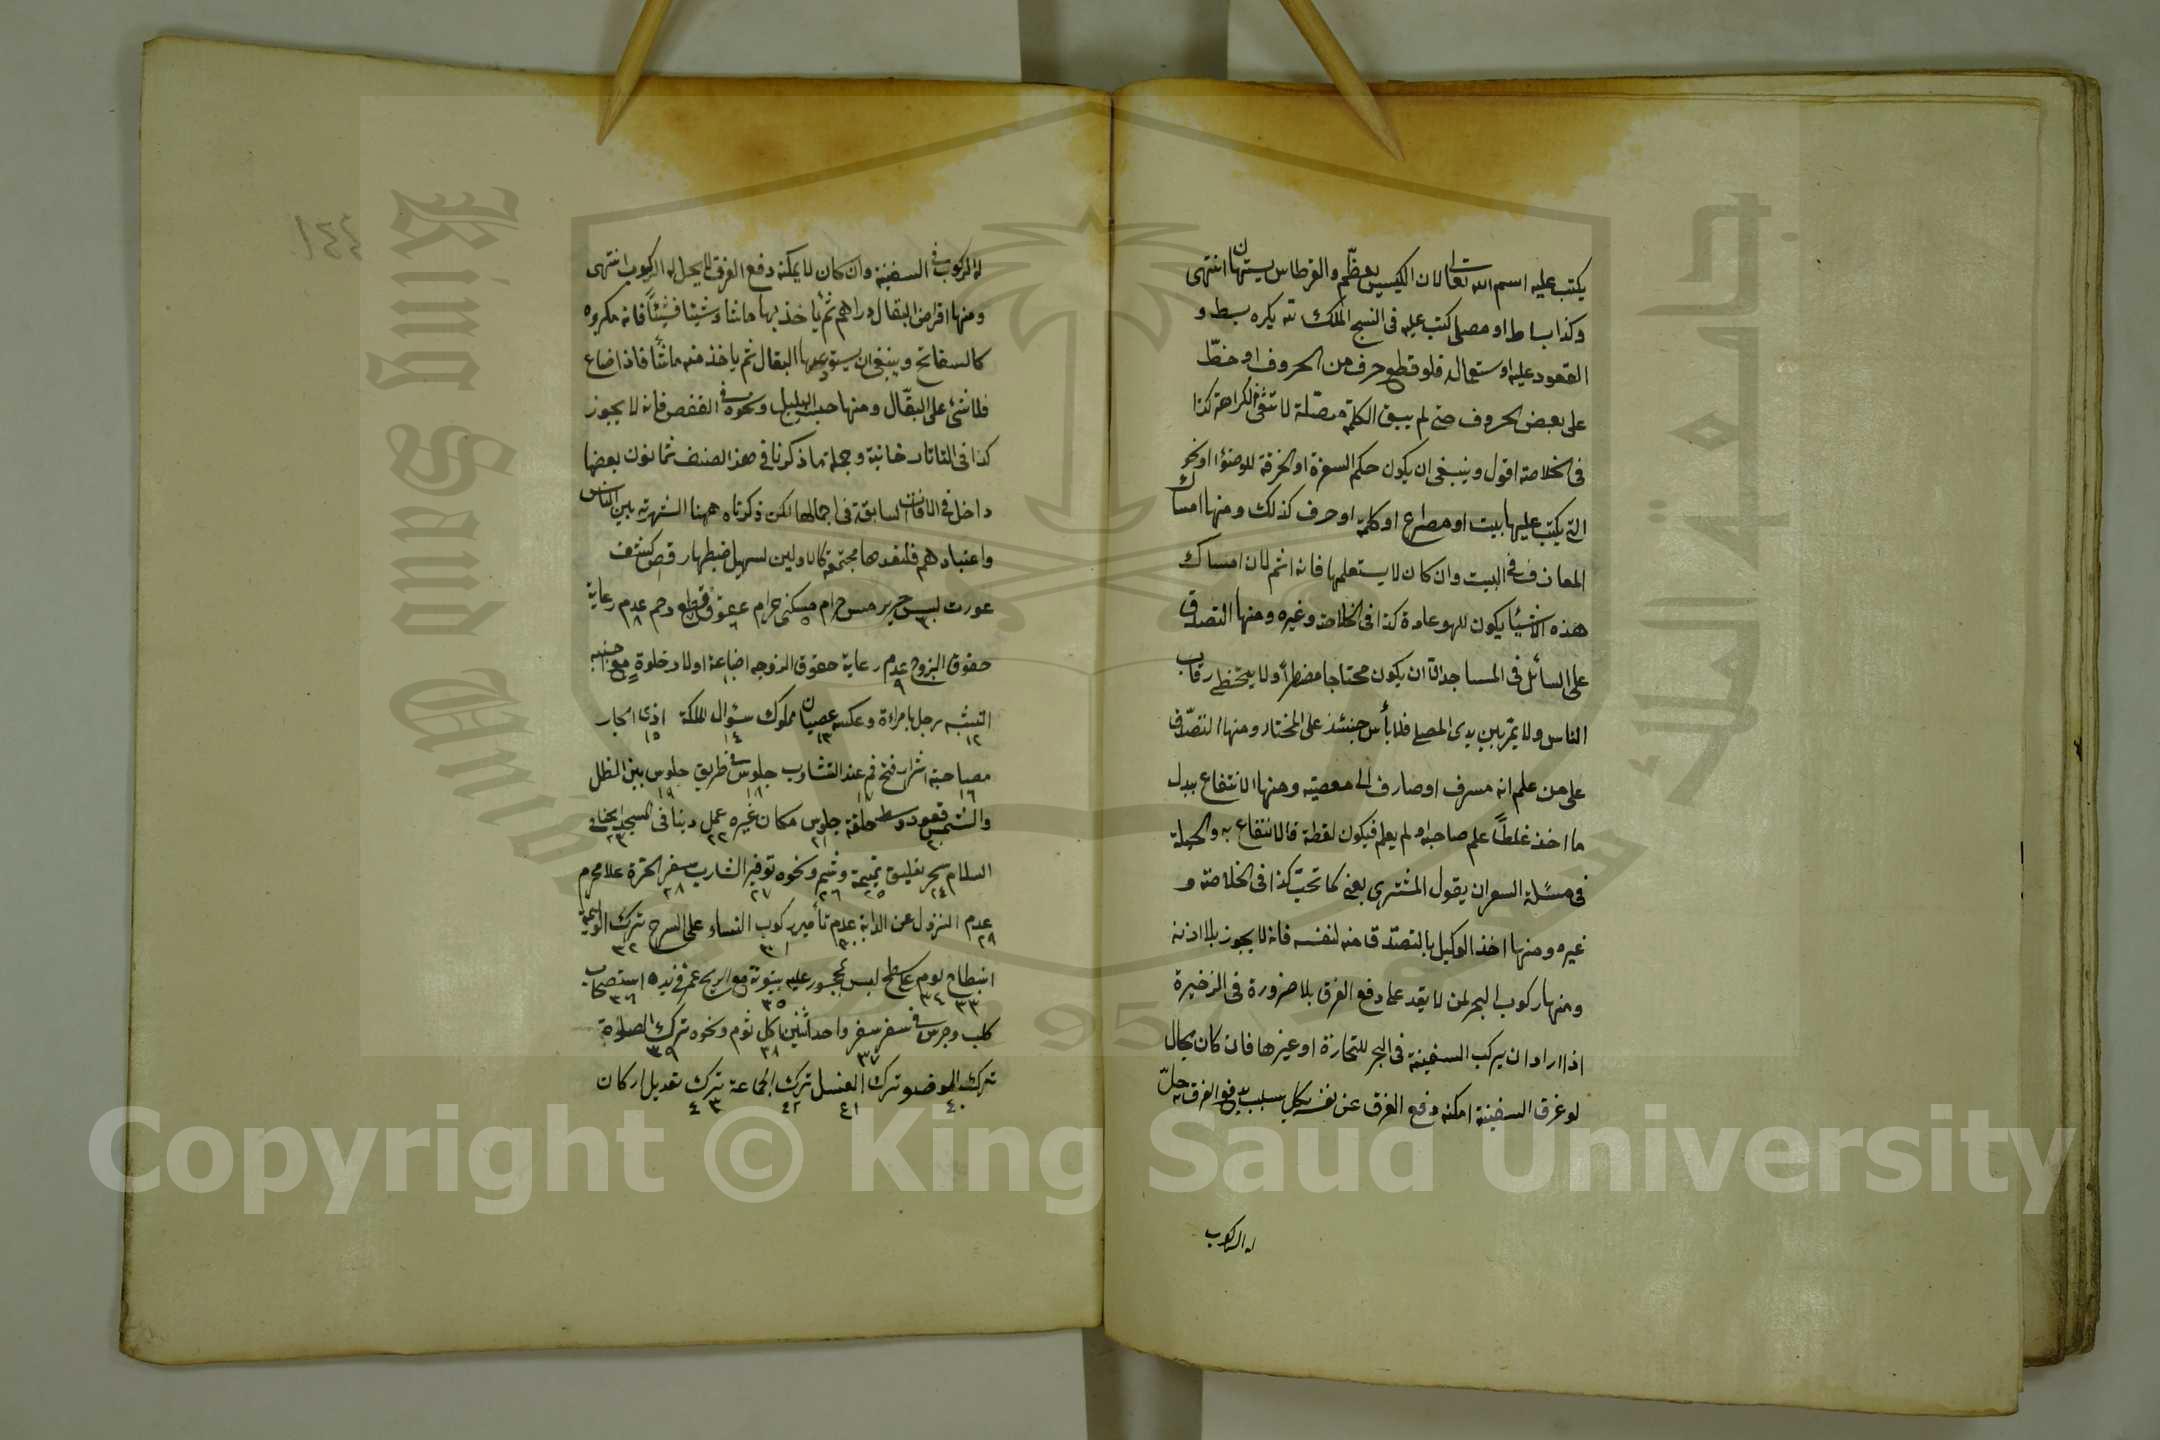 يكتب عليه اسم الله تعالى لان الكيس يعظّم والقرطاس يستهان انتهى
وكذا بساط او مصلى كتب عليه في النسج الملك لله يكره بسطه و
القعود عليه او ستعماله فلو قطع حرف من الحروف او خطّ
على بعض الحروف حتى لم يبق الكلمة متصلة لا تنتفى الكراهة كذا
في الخلاصة اقول وينبغي ان يكون حكم السفرة او الخرقة للوضوء او نحو
التي يكتب عليها بيت او مصراع او كلمة او حرف كذلك ومنها امساك
المعازف في البيت وان كان لا يستعلمها فانه اثم لان امساك
هذه الاشياء يكون للهو عادة كذا في الخلاصة وغيره ومنها التصدق
على السائل في المساجد الا ان يكون محتاجا مضطرا ولا يتخطى رقاب
الناس ولا يمر بين يدى المصلي فلا بأس حينئذ على المختار ومنها التصدّق
على من علم انه مسرف او صارف الى معصية ومنها الانتفاع ببدل
ما اخذ غلطاً علم صاحبه او لم يعلم فيكون لقطة فالانتفاع به والحيلة
في مسئلة السعر ان يقول المشترى بعنى كما تحبّ كذا في الخلاصة و
غيره ومنها اخذ الوكيل بالتصدق منه لنفسه فانه لا يجوز بلا اذنه
ومنها ركوب البحر لمن لا يقدر على دفع الغرق بلا ضرورة في الزخيرة
اذا اراد ان يركب السفينة في البحر للتجارة او غيرها فان كان بحال
لو غرق السفينة امكنه دفع الغرق عن نفسه بكل سبب يدفع الغرق به حلّ
له الركوب
١٤٤
له الركوب في السفينة وان كان لا يمكنه دفع الغرق لا يحل له الركوب انتهى
ومنها اقراض البقال دراهم ثم يأخذ بها ما شاء شيئا فشيئاً فانه مكروه
كالسفاتج وينبغي ان يستودعها البقال ثم يأخذ منه ما شاء فاذا ضاع
فلا شئ على البقّال ومنها حبس البلبل ونحوه في القفص فانه لا يجوز
كذا في التاتارخانية وجملة ما ذكرنا في هذا الصنف ثمانون بعضها
داخل في الافات السابقة في اجمالها لكن ذكرناه ههنا لشهرته بين الناس
واعتيادهم فلنعدها مجتمعة كالاولين لسهيل ضبطها رقص كشف
عورت لبس حرير مس حرام سكنى حرام عقوق قطع رحم عدم رعاية
حقوق الزوج عدم رعاية حقوق الزوجه اضاعة اولاد خلوة مع اجنبيه
التشبه برجل بامراءة وعكسه عصيان مملوك سؤال الملكة اذى الجار
مصاحبة اشرار فتح فم عند التثاوب جلوس في طريق جلوس بين الظل
والشمس قعود وسط حلقة جلوس مكان غيره عمل دنيا في المسجد
السلام سحر تعليق تميمة وشم ونحوه توفير الشارب سفر الحرة بلا محرم
عدم النزول عن الدابة عدم تأمير ركوب النساء على السرج ترك الوليمة
انبطاح نوم على سطح ليس بمحجور عليه بيتوتة مع ريح غمر في يده استصحاب
كلب وجرس في سفر سفر واحد اثنين اكل ثوم ونحوه ترك الصلوة
ترك الوضوء ترك الغسل ترك الجماعة ترك تعديل اركان
Copyright © King Saud University